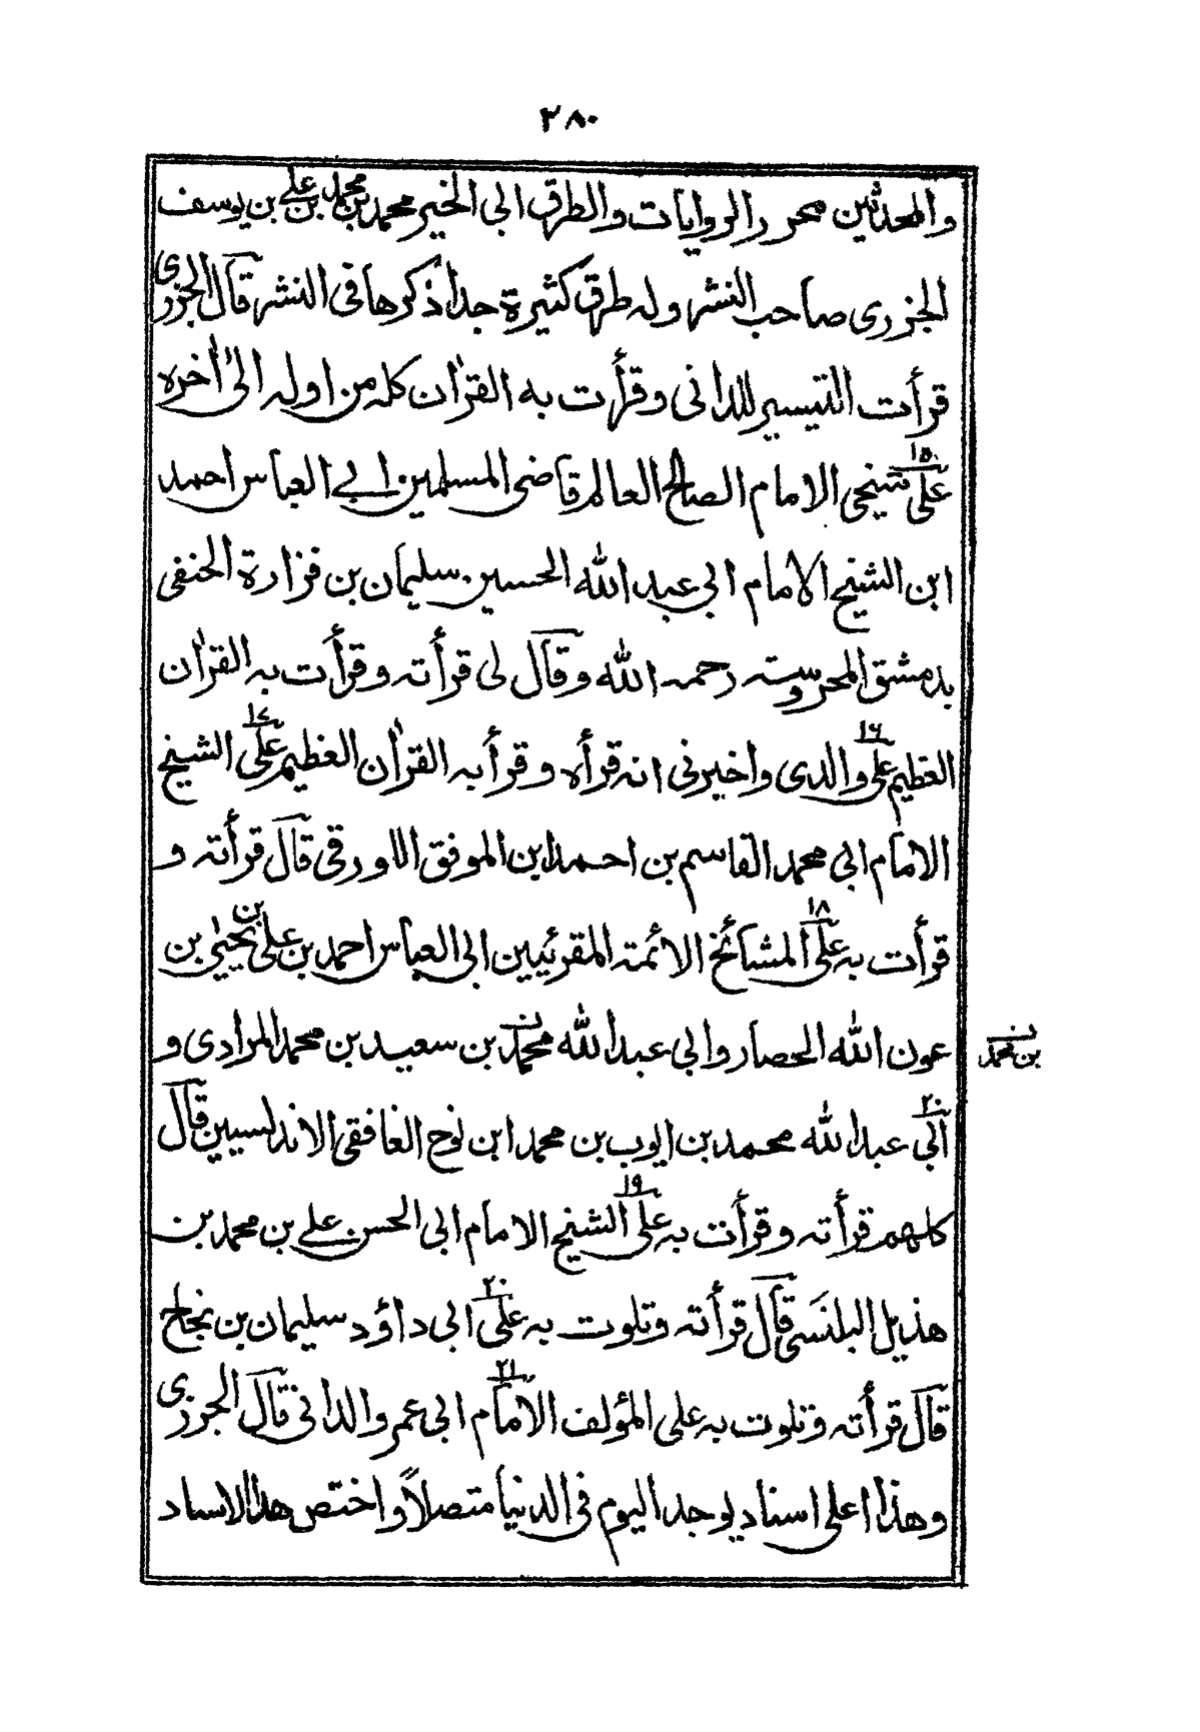 ٢٨٠
والمحدثين محرر الروايات والطرق ابي الخير محمد بن محمد بن علي بن يوسف
الجزري صاحب النشر وله طرق كثيرة جدا ذكرها في النشر قال الجزري
قرأت التيسير للداني وقرأت به القرآن كله من اوله الى اٰخره
١٥
على شيخي الامام الصالح العالم قاضي المسلمين ابي العباس احمد
ابن الشيخ الامام ابي عبد الله الحسين سليمان بن فزارة الحنفي
بدمشق المحروسته رحمه الله وقال لي قرأته وقرأت به القرآن
١٦ ١٧
العظيم على والدي واخبرني انه قرأه وقرأ به القرآن العظيم على الشيخ
الامام ابي محمد القاسم بن احمد ابن الموفق اللاورقي قال قرأته و
١٨
قرأت به على المشائخ الائمة المقرئيين ابي العباس احمد بن على بن يحيى بن
عون الله الحصار وابي عبد الله محمد بن سعيد بن محمد المرادي و
بن محمد
٢٠
ابي عبد الله محمد بن ايوب بن محمد ابن نوح الغافقي الاندلسيين قال
١٩
كلهم قرأته وقرأت به على الشيخ الامام ابي الحسن علي بن محمد بن
٢٠
هذيل البلنَسي قال قرأته وتلوت به على ابي داؤد سليمان بن نجاح
٢١
قال قرأته وتلوت به على المؤلف الامام ابي عمرو الداني قال الجزري
وهذا اعلى اسناد يوجد اليوم في الدنيا متصلاً واختص هذا الاسناد